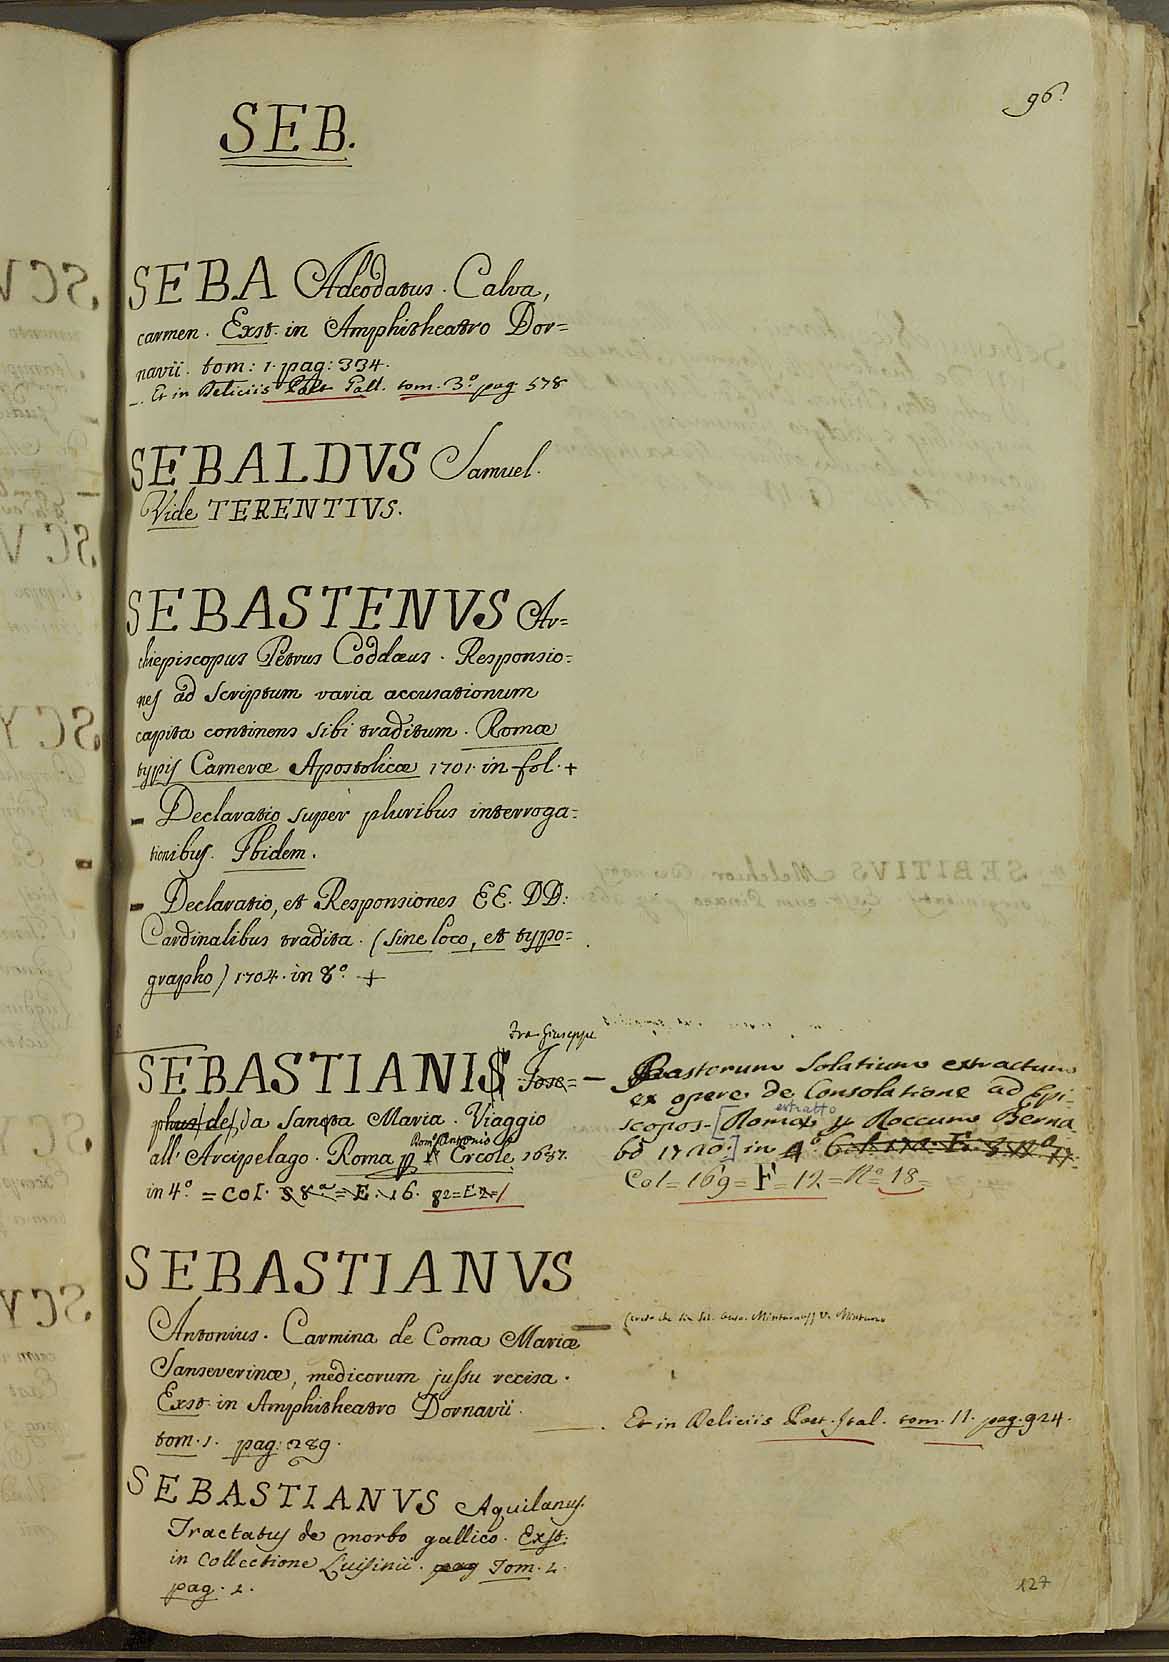 96.
SEB.
SEBA Adeodatus. Calva,
carmen. Exst. in Amphitheatro Dor=
navii. tom: 1. pag: 334.
_. Et in Deliciis Poet. Gall. tom. 3.o pag 578
SEBALDVS Samuel.
Vide TERENTIVS.
SEBASTENVS Ar=
chiepiscopus Petrus Coddæus. Responsio=
nes ad scriptum varia accusationum
capita continens sibi traditum. Romæ
typis Cameræ Apostolicæ 1701. in fol. +
- Declaratio super pluribus interroga=
tionibus. Ibidem.
- Declaratio, et Responsiones EE. DD:
Cardinalibus tradita. (sine loco, et typo=
grapho) 1704. in 8.o +
Fra Giuseppe
SEBASTIANIS Jose=
phus de da Santa Maria. Viaggio
all' Arcipelago. Roma p Ercole 1687.
in 4.o = Col. 88.a = E. 16. 82=E2=1
- Pastorum Solatium extractum
ex opere de Consolatione ad Epi=
scopos. [Romæ extratto Roccum Berna
bò 1710.] in 4.o
Col = 169 = F = 12 = N.o 18 =
SEBASTIANVS
Antonius. Carmina de Coma Mariæ
Sanseverinæ, medicorum jussu recisa.
Exst. in Amphitheatro Dornavii.
tom. 1. pag: 289.
_. Et in Deliciis Poet. Ital. tom. 11. pag. 924.
SEBASTIANVS Aquilanus.
Tractatus de morbo gallico. Exst.
in Collectione Luisinii. pag Tom. 1.
pag. 1.
127